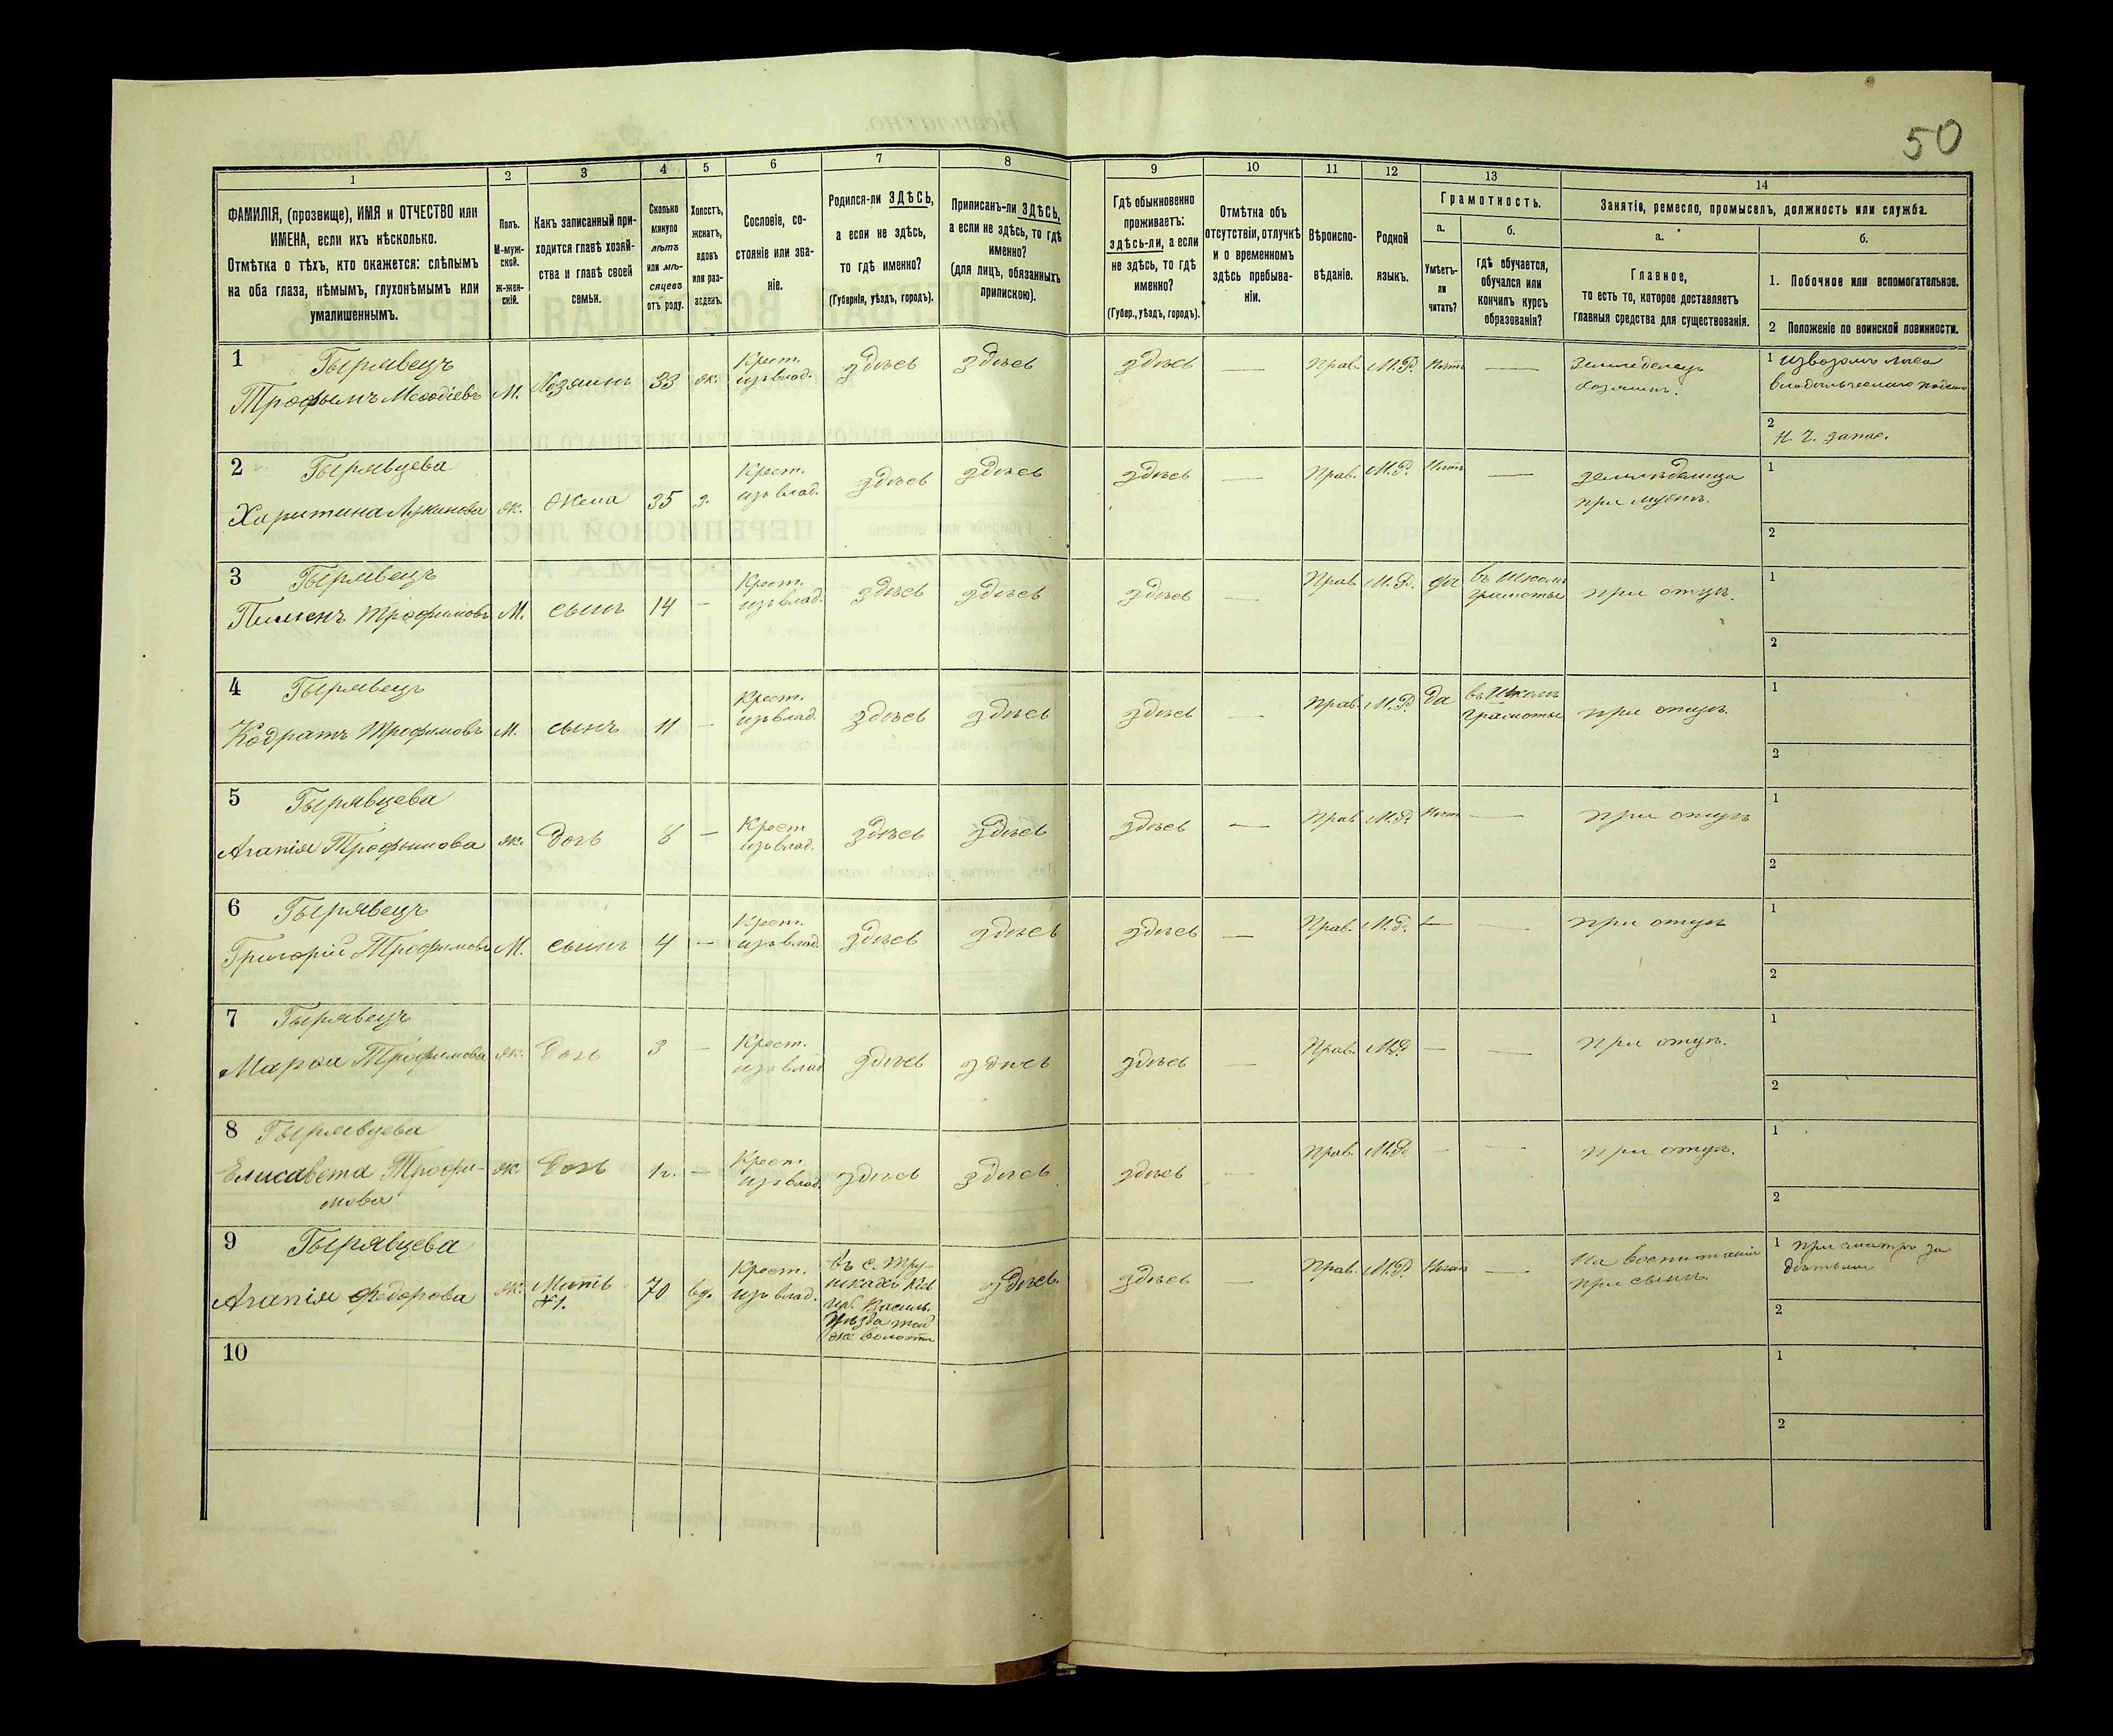 50
1
2
3
4
5
6
7
8
9
10
11
12
13
14
ФАМИЛІЯ, (прозвище), ИМЯ и ОТЧЕСТВО или
ИМЕНА, если ихъ нѣсколько.
Отмѣтка о тѣхъ, кто окажется: слѣпымъ
на оба глаза, нѣмымъ, глухонѣмымъ или
умалишеннымъ.
Полъ.
М-муж-
ской.
Ж-жен-
скій.
Какъ записанный при-
ходится главѣ хозяй-
ства и главѣ своей
семьи.
Сколько
минуло
лѣтъ
или мѣ-
сяцевъ
отъ роду.
Холостъ,
женатъ,
вдовъ
или раз-
веденъ.
Сословіе, со-
стояніе или зва-
ніе.
Родился-ли ЗДѢСЬ,
а если не здѣсь,
то гдѣ именно?
(Губернія, уѣздъ, городъ).
Приписанъ-ли ЗДѢСЬ,
а если не здѣсь, то гдѣ
именно?
(для лицъ, обязанныхъ
припискою).
Гдѣ обыкновенно
проживаетъ:
здѣсь-ли, а если
не здѣсь, то гдѣ
именно?
(Губер., уѣздъ, городъ).
Отмѣтка объ
отсутствіи, отлучкѣ
и о временномъ
здѣсь пребыва-
ніи.
Вѣроиспо-
вѣданіе.
Родной
языкъ.
Грамотность.
а.
б.
Умѣетъ-
ли
читать?
гдѣ обучается,
обучался или
кончилъ курсъ
образованія?
Занятіе, ремесло, промыселъ, должность или служба.
а.
б.
Главное,
то есть то, которое доставляетъ
главныя средства для существованія.
1. Побочное или вспомогательное.
2 Положеніе по воинской повинности.
1 Гырявецъ
Трофымъ Меѳодіевъ
М.
Хозяинъ
33
ж.
Крест.
изъ влад.
здѣсь
здѣсь
здѣсь
—
Прав.
М.Р.
Нѣтъ
—
Земледелецъ
хозяинъ.
1 Извозомъ леса
2
Н. Ч. запас.
2 Гырявцева
Харитина Лукинова
ж.
жена
35
з.
Крест.
изъ влад.
здѣсь
здѣсь
здѣсь
—
Прав.
М.Р.
Нѣтъ
—
земледелица
при мужѣ.
1
2
3 Гырявецъ
Пименъ Трофимовъ
М.
сынъ
14
—
Крест.
изъ влад.
здѣсь
здѣсь
здѣсь
—
Прав.
М.Р.
да
въ Школѣ
грамоты
при отцѣ.
1
2
4 Гырявецъ
Кодратъ Трофимовъ
М.
сынъ
11
—
Крест.
изъ влад.
здѣсь
здѣсь
здѣсь
—
Прав.
М.Р.
да
въ Школѣ
грамоты
при отцѣ.
1
2
5 Гырявцева
Агапія Трофимова
ж.
дочь
8
—
Крест
изъ влад.
здѣсь
здѣсь
здѣсь
—
Прав
М.Р.
Нѣтъ
—
при отцѣ
1
2
6 Гырявецъ
Григорій Трофимовъ
М.
сынъ
4
—
Крест.
изъ влад.
здѣсь
здѣсь
здѣсь
—
Прав.
М.Р.
—
—
при отцѣ
1
2
7 Гырявецъ
Марѳа Трофимова
ж.
дочь
3
—
Крест.
изъ влад
здѣсь
здѣсь
здѣсь
—
Прав.
М.Р
—
—
при отцѣ.
1
2
8 Гырявцева
Елисавета Трофи-
мова
ж
дочь
1г.
—
Крест.
изъ влад.
здѣсь
здѣсь
здѣсь
—
Прав.
М.Р.
—
—
при отцѣ.
1
2
9 Гырявцева
Агапія Федорова
ж.
Мать
№1.
70
вд.
Крест.
изъ влад.
въ с.
Губ. Василь.
уѣзда той
же волости
здѣсь.
здѣсь
—
Прав.
М.Р.
Нѣтъ
—
На воспитаніи
при сынѣ.
1 Присмотръ за
дѣтьми
2
10
1
2